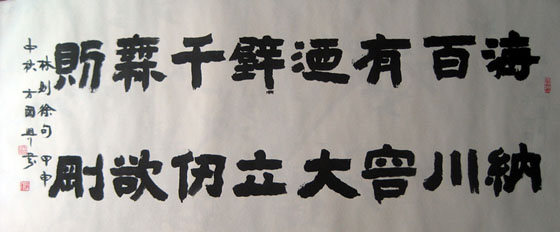 海納
百川
有容
迺大
壁立
千仞
無欲
則剛
林則徐句 甲申
中秋